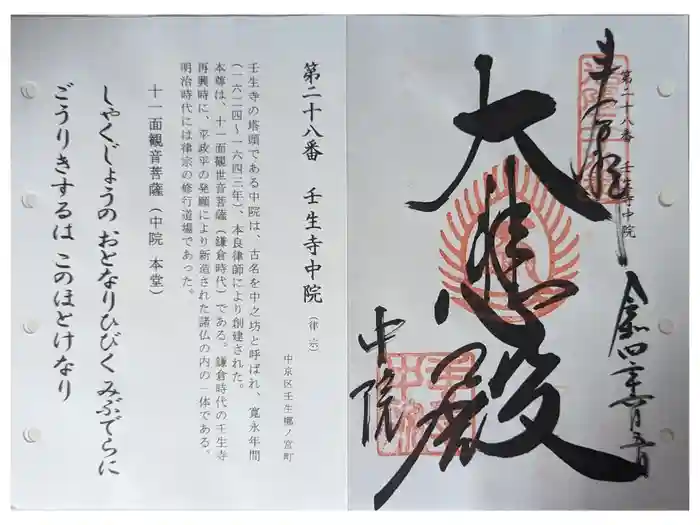 奉拝
第二十八番 壬生寺中院
令和四年一月五日
大悲殿
中院
第二十八番 壬生寺中院(律宗)
中京区壬生梛ノ宮町
壬生寺の塔頭である中院は、古名を中之坊と呼ばれ、寛永年間
(一六二四~一六四三年)、本良律師により創建された。
本尊は、十一面観世音菩薩(鎌倉時代)である。鎌倉時代の壬生寺
再興時に、平政平の発願により新造された諸仏の内の一体である。
明治時代には律宗の修行道場であった。
十一面観音菩薩(中院 本堂)
しゃくじょうの おとなりひびく みぶでらに
ごうりきするは このほとけなり